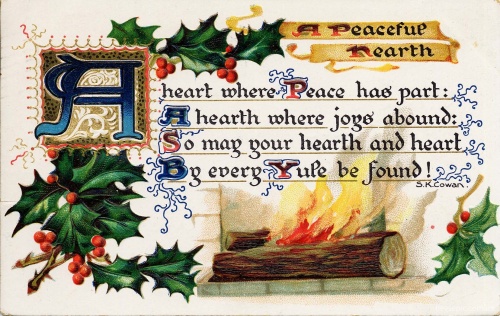 A Peaceful
Hearth
A heart where Peace has part:
A hearth where joys abound:
So may your hearth and heart
By every Yule be found!
S.K.Cowan.